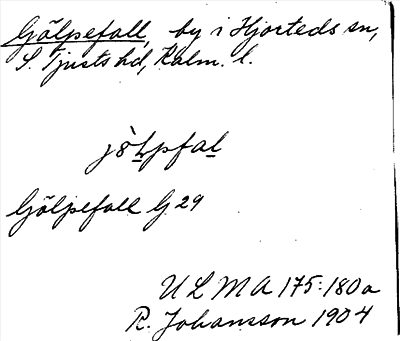 Gölpefall, by i Hjorteds sn,
S. Tjusts hd, Kalm. l.
jö̀Lpfal
Gölpefall G 29
ULMA 175:180a
R. Johansson 1904